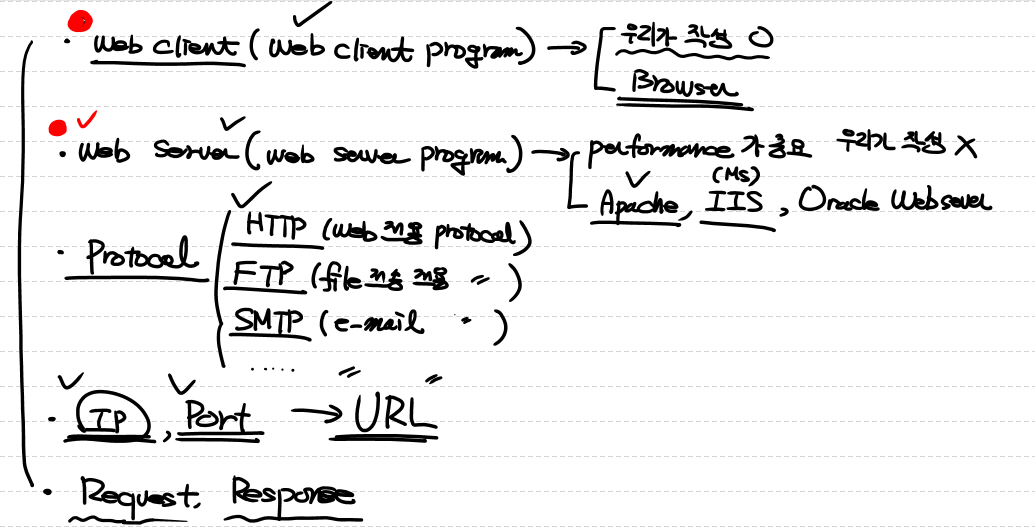 · Web client (Web client program) → 우리가 작성 O
Browser
· Web Server (web server program) → performance 가 중요 우리가 작성 X
Apache, IIS (MS), Oracle Webserver
· Protocol HTTP (web 전용 protocol)
FTP (file 전송 전용 〃)
SMTP (e-mail 〃)
.....
· IP, Port → URL
· Request, Response